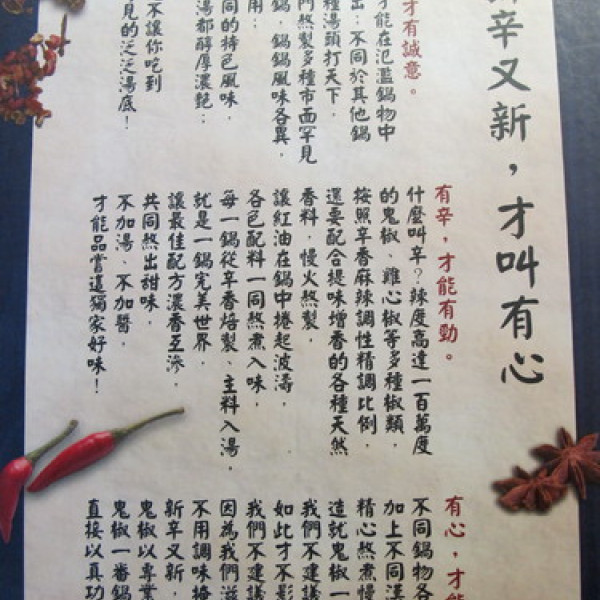 辛又新，才叫有心
才有誠意。
才能在氾濫鍋物中
出：不同於其他鍋
種湯頭打天下，
門熬製多種市面罕見
鍋，鍋鍋風味各異，
用：
同的特色風味，
湯都醇厚濃艷；
不讓你吃到
見的泛泛湯底！
有辛，才能有勁。
什麼叫辛？辣度高達一百萬度
的鬼椒、雞心椒等多種椒類，
按照辛香麻辣調性精調比例，
還要配合提味增香的各種天然
香料，慢火熬製，
讓紅油在鍋中捲起波濤，
各色配料一同熬煮入味，
每一鍋從辛香焙製、主料入湯，
就是一鍋完美世界，
讓最佳配方濃香互滲，
共同熬出甜味，
不加湯、不加醬，
才能品嘗這獨家好味！
有心，才能
不同鍋物各
加上不同漢
精心熬煮慢
造就鬼椒一
我們不建議
如此才不影
我們不建議
因為我們滋
不用調味掩
新辛又新，
鬼椒以專業
鬼椒一番鍋
直接以真功